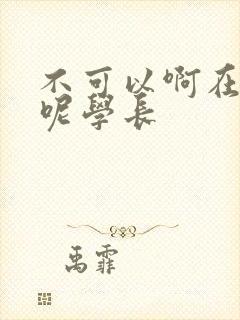 不可以啊在
呢学长
禹霏